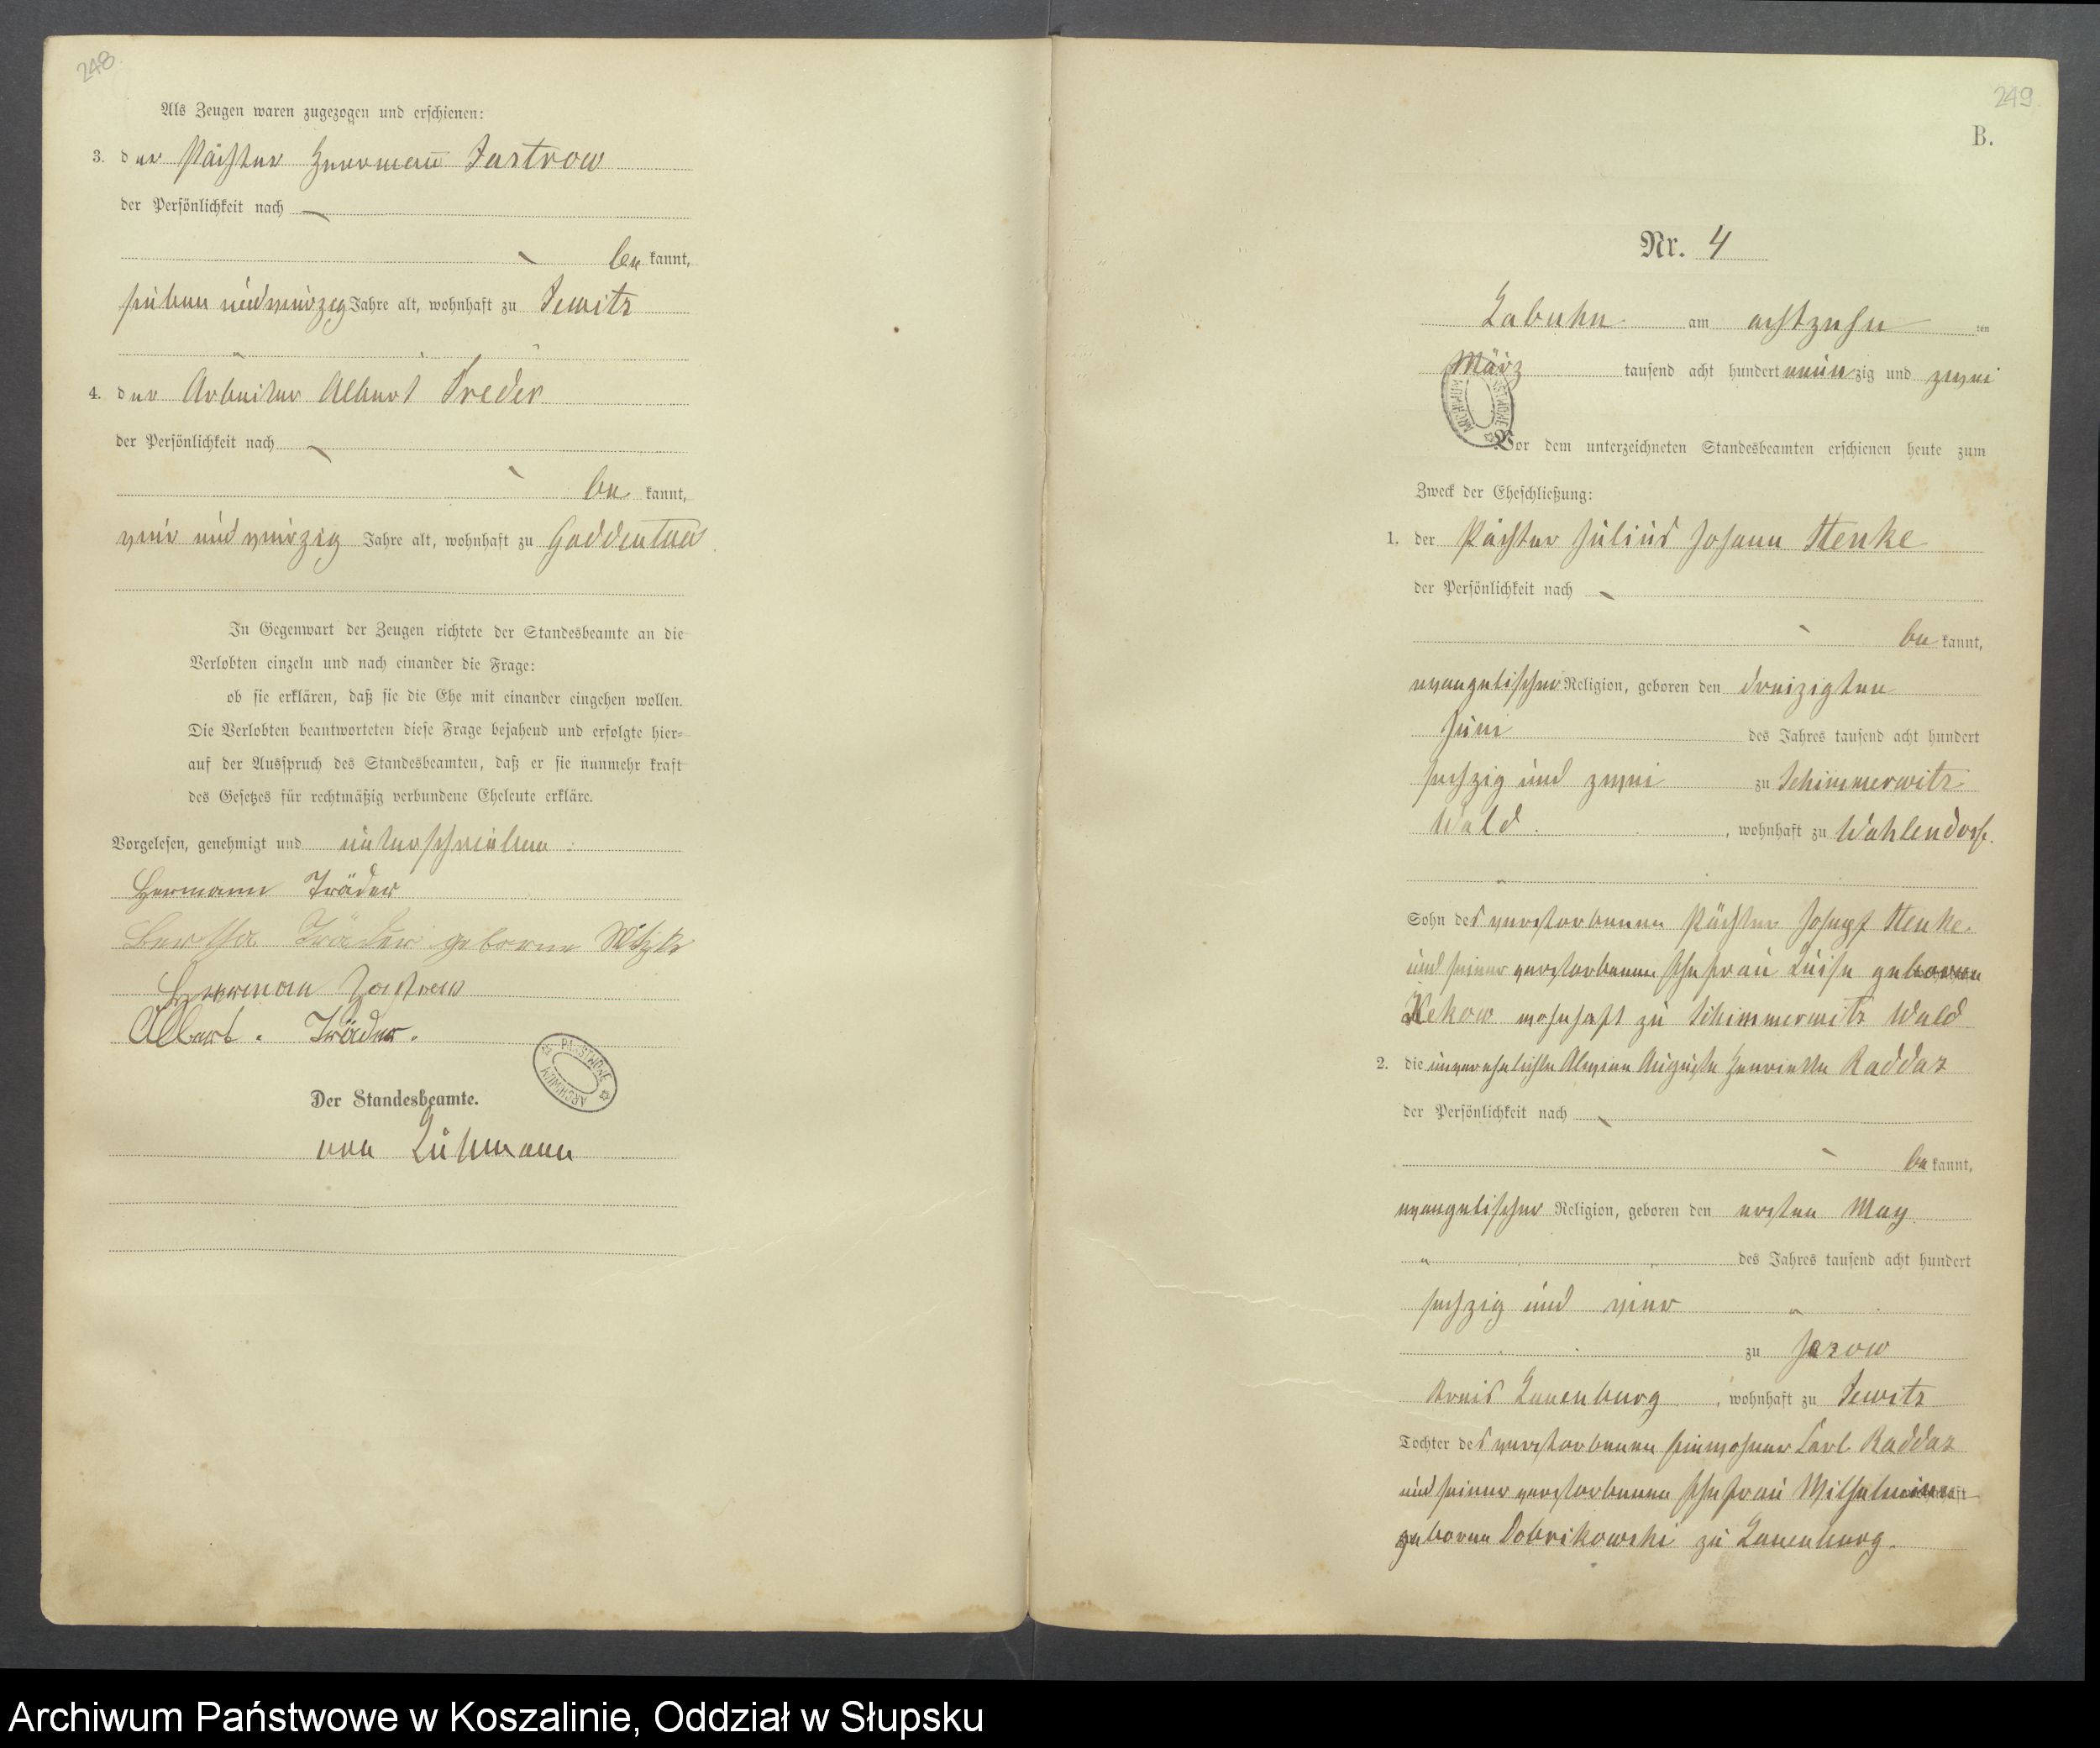 248
Als Zeugen waren zugezogen und erschienen:
3. der Pächter Herrmañ Jastrow
der Persönlichkeit nach
be kannt,
sieben und vierzig Jahre alt, wohnhaft zu Jewitz
4. der Arbeiter Albert Treder
der Persönlichkeit nach
be kannt,
vier und vierzig Jahre alt, wohnhaft zu Goddentow
In Gegenwart der Zeugen richtete der Standesbeamte an die
Verlobten einzeln und nach einander die Frage:
ob sie erklären, daß sie die Ehe mit einander eingehen wollen.
Die Verlobten beantworteten diese Frage bejahend und erfolgte hier-
auf der Ausspruch des Standesbeamten, daß er sie nunmehr kraft
des Gesetzes für rechtmäßig verbundene Eheleute erkläre.
Vorgelesen, genehmigt und unterschrieben:
Hermann Träder
Bertha Träder geborne
Herrman Jastrow
Albert. Träder.
ARCHIWUM PAŃSTWOWE
Der Standesbeamte.
von
249
B.
Nr. 4
Labuhn am achtzehn ten
März tausend acht hundert neunzig und zwei
ARCHIWUM PAŃSTWOWE
Vor dem unterzeichneten Standesbeamten erschienen heute zum
Zweck der Eheschließung:
1. der Pächter Julius Johann Henke
der Persönlichkeit nach
be kannt,
evangelischer Religion, geboren den dreizigten
Juni des Jahres tausend acht hundert
sechzig und zwei zu Schimmerwitz
Wald, wohnhaft zu Wahlendorf.
Sohn des verstorbenen Pächter Joseph Henke
und seiner verstorbenen Ehefrau Luise geborene
Kekow wohnhaft zu Schimmerwitz Wald
2. die unverehelichte Alwine Auguste Henriette Raddaz
der Persönlichkeit nach
be kannt,
evangelischer Religion, geboren den ersten May
des Jahres tausend acht hundert
sechzig und vier
zu Jazow
Kreis Lauenburg, wohnhaft zu Jewitz
Tochter des verstorbenen Einwohner Carl Raddaz
und seiner verstorbenen Ehefrau Wilhelmine
geborne Dobrikowski zu Lauenburg.
Archiwum Państwowe w Koszalinie, Oddział w Słupsku